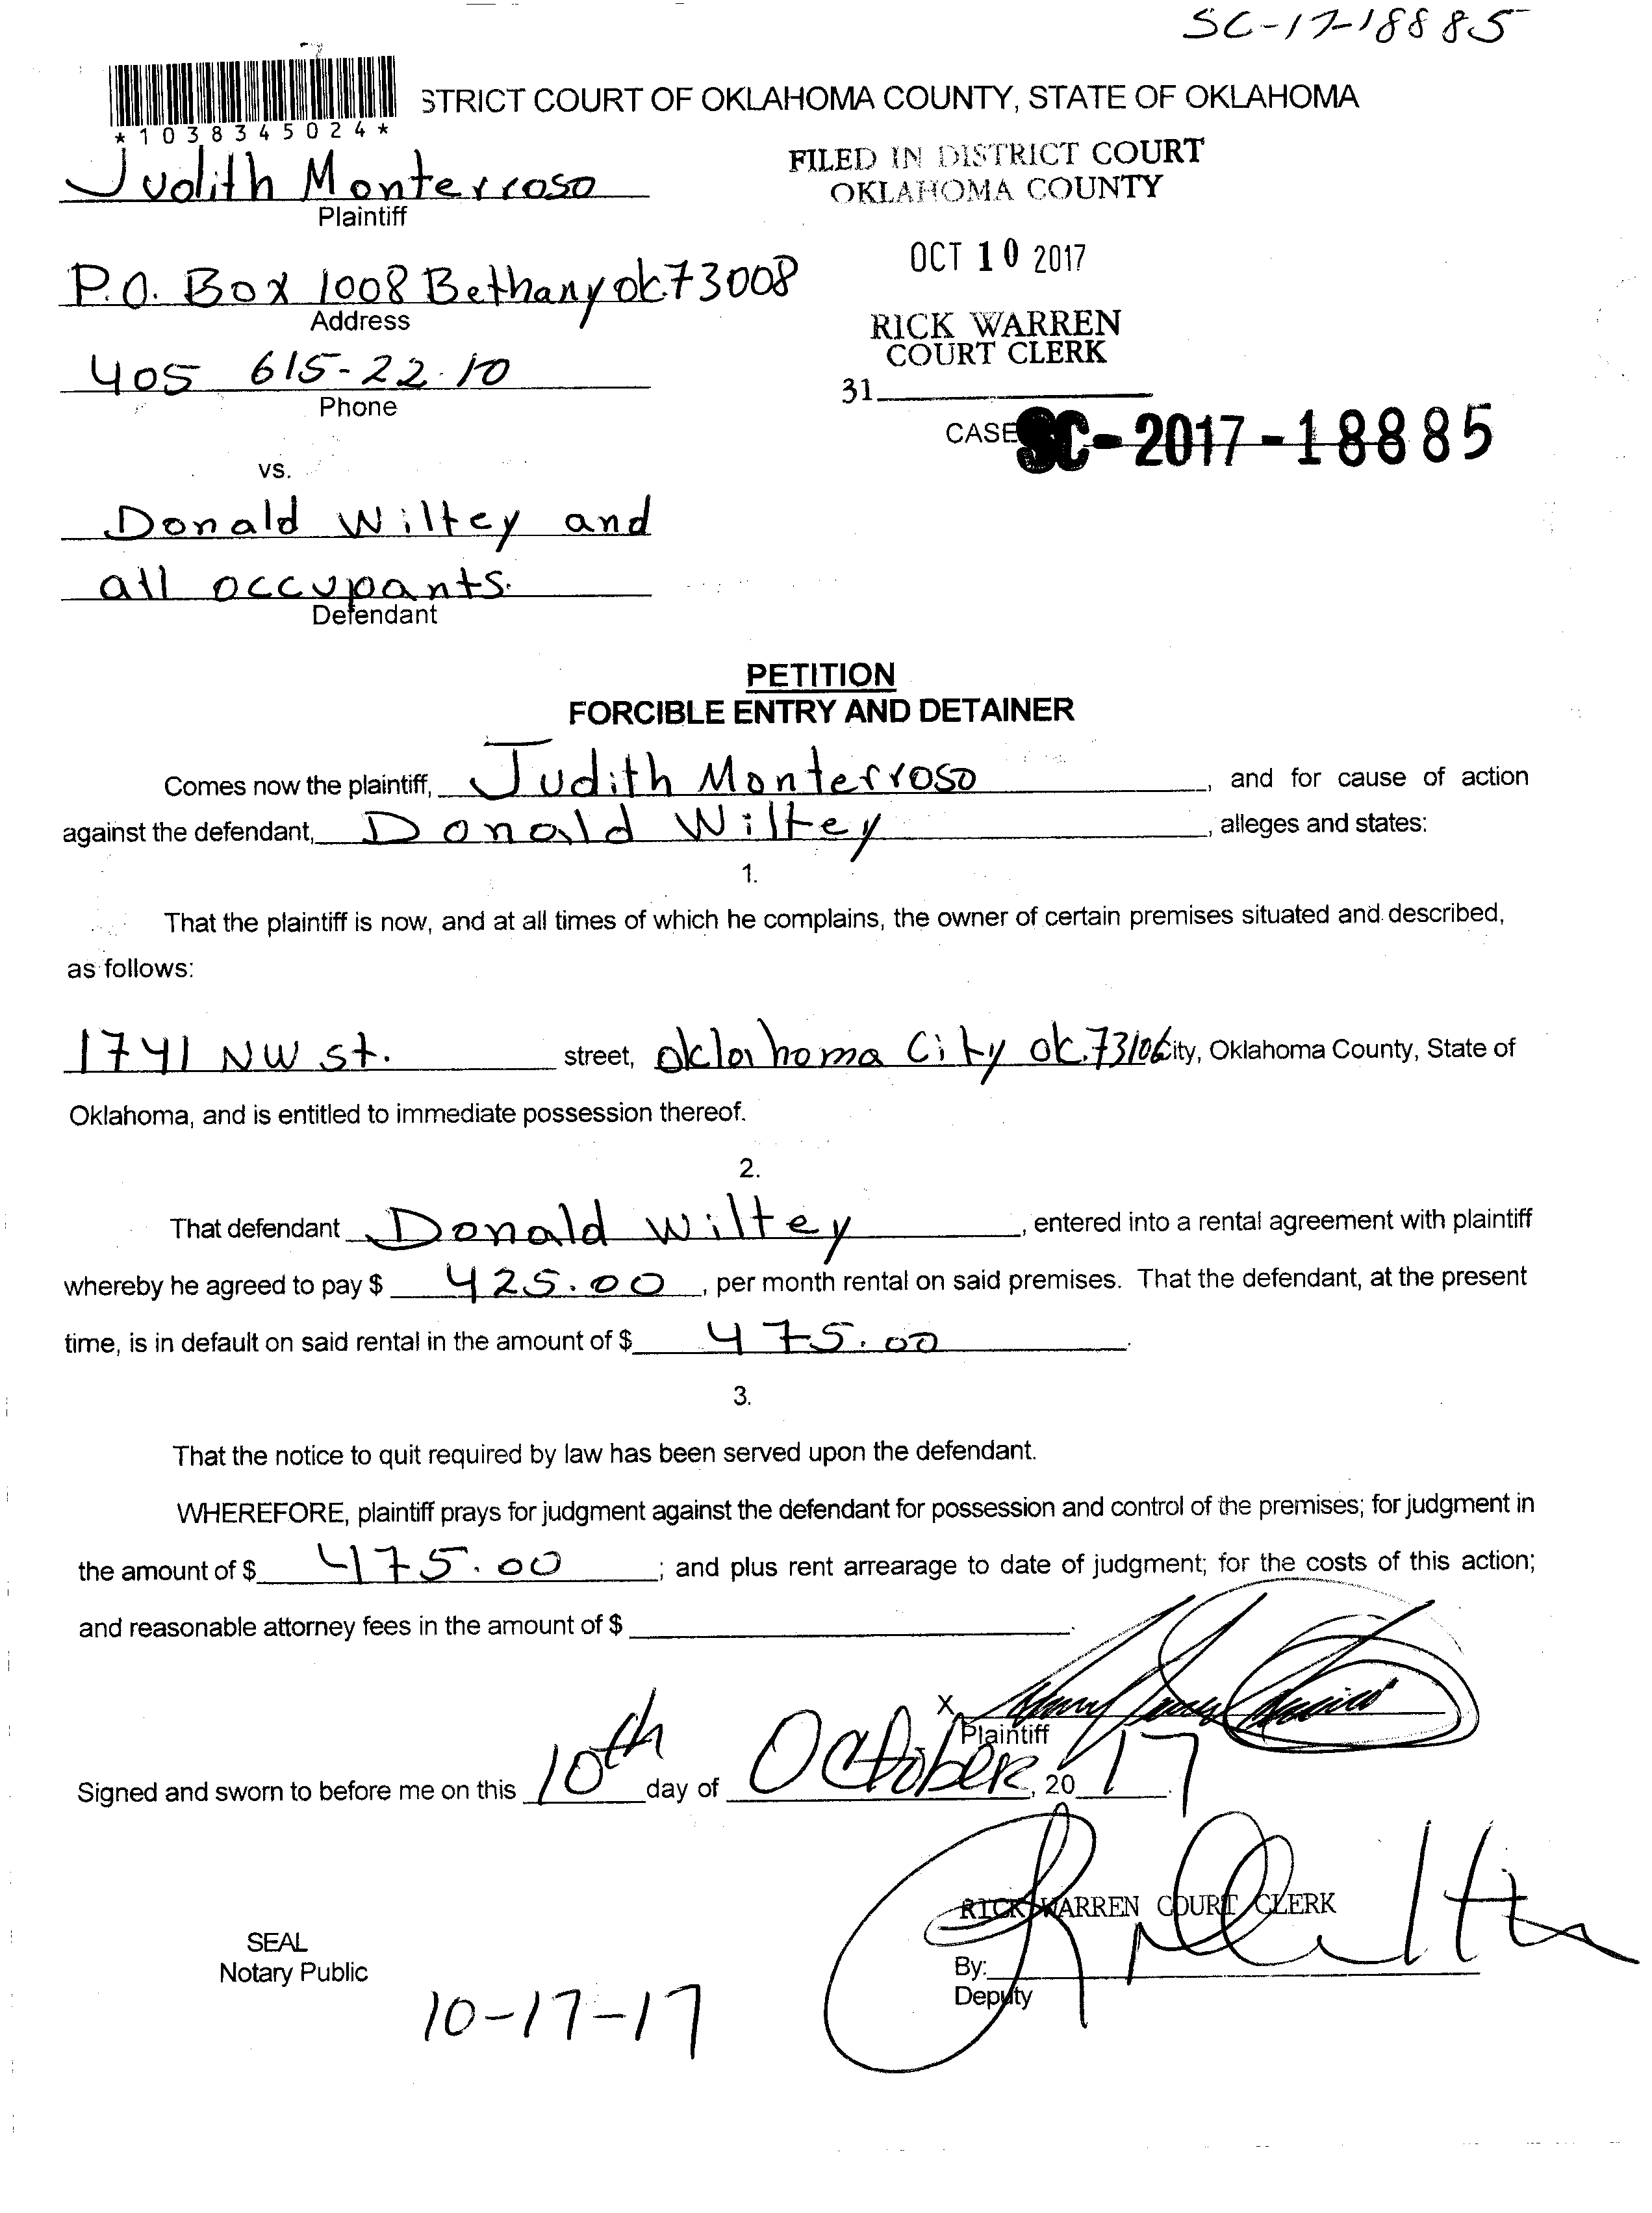 SC-17-18885
STRICT COURT OF OKLAHOMA COUNTY, STATE OF OKLAHOMA
*1038345024*
FILED IN DISTRICT COURT
OKLAHOMA COUNTY
Judith Monterroso
Plaintiff
OCT 10 2017
P.O. Box 1008 Bethany ok 73008
Address
RICK WARREN
COURT CLERK
405 615-22-10
Phone
31
CASE SC-2017-18885
vs.
Donald Wiltey and
all occupants.
Defendant
PETITION
FORCIBLE ENTRY AND DETAINER
Comes now the plaintiff, Judith Monterroso, and for cause of action
against the defendant, Donald Wiltey, alleges and states:
1.
That the plaintiff is now, and at all times of which he complains, the owner of certain premises situated and described,
as follows:
1741 NW st. street, oklahoma City ok. 73106 City, Oklahoma County, State of
Oklahoma, and is entitled to immediate possession thereof.
2.
That defendant Donald Wiltey, entered into a rental agreement with plaintiff
whereby he agreed to pay $ 425.00, per month rental on said premises. That the defendant, at the present
time, is in default on said rental in the amount of $ 475.00.
3.
That the notice to quit required by law has been served upon the defendant.
WHEREFORE, plaintiff prays for judgment against the defendant for possession and control of the premises; for judgment in
the amount of $ 475.00; and plus rent arrearage to date of judgment; for the costs of this action;
and reasonable attorney fees in the amount of $ .
X
Plaintiff
Signed and sworn to before me on this 10th day of October, 2017.
RICK WARREN COURT CLERK
SEAL
Notary Public
By:
Deputy
10-17-17